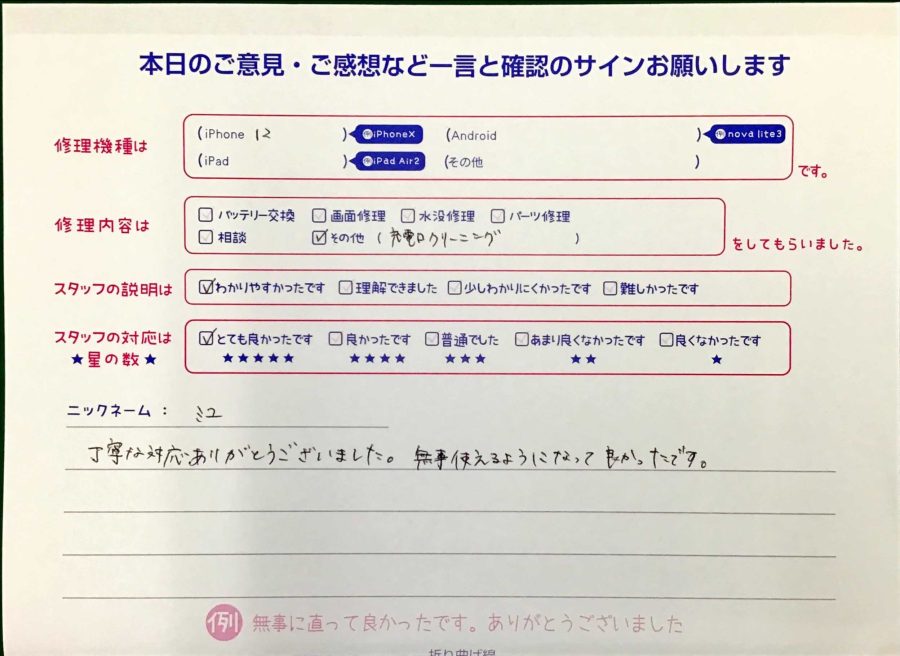 本日のご意見・ご感想など一言と確認のサインお願いします
修理機種は
(iPhone 12 ) 例iPhoneX (Android ) 例nova lite3
(iPad ) 例iPad Air2 (その他 ) です。
修理内容は
バッテリー交換 画面修理 水没修理 パーツ修理
相談 その他 ( 充電口クリーニング ) をしてもらいました。
スタッフの説明は わかりやすかったです 理解できました 少しわかりにくかったです 難しかったです
スタッフの対応は とても良かったです 良かったです 普通でした あまり良くなかったです 良くなかったです
★星の数★ ★★★★★ ★★★★ ★★★ ★★ ★
ニックネーム： ミユ
丁寧な対応ありがとうございました。無事使えるようになって良かったです。
例 無事に直って良かったです。ありがとうございました
折り曲げ線